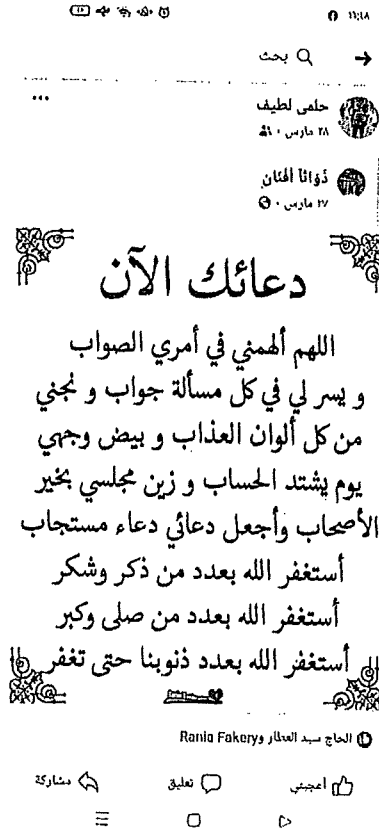 ١١:١٨
بحث
حلمى لطيف
٢٨ مارس
ذَوَاتَآ أَفْنَانٍ
٢٧ مارس
دعائك الآن
اللهم ألهمني في أمري الصواب
و يسر لي في كل مسألة جواب و نجني
من كل ألوان العذاب و بيض وجهي
يوم يشتد الحساب و زين مجلسي بخير
الأصحاب وأجعل دعائي دعاء مستجاب
أستغفر الله بعدد من ذكر وشكر
أستغفر الله بعدد من صلى وكبر
أستغفر الله بعدد ذنوبنا حتى تغفر
الحاج سيد العطار وRania Fakery
أعجبني تعليق مشاركة